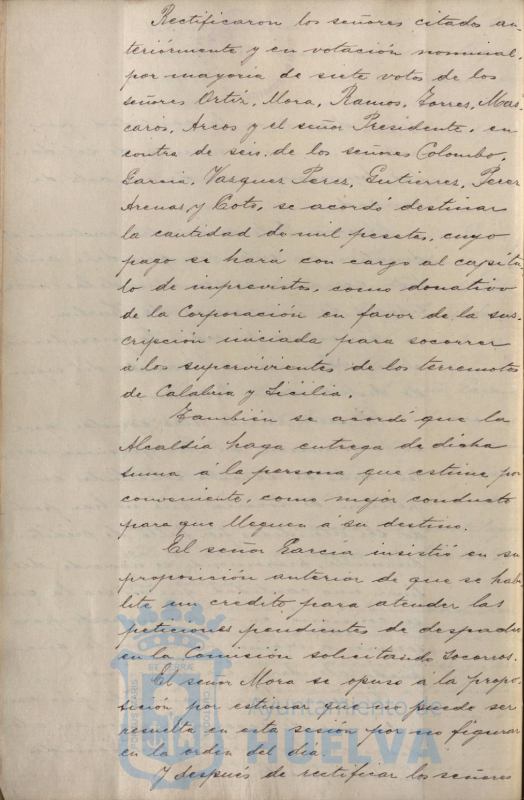 Rectificaron los señores citados an-
teriórmente y en votación nominal,
por mayoria de siete votos de los
señores Ortiz, Mora, Ramos, Torres, Mas-
caros, Arcos y el señor Presidente, en
contra de seis, de los señores Colombo,
Garcia, Vazquez Perez, Gutierrez, Perez
Arenas, y Coto, se acordó destinar
la cantidad de mil pesetas, cuyo
pago se hará con cargo al capitu-
lo de imprevistos, como donativo
de la Corporación en favor de la sus-
cripción iniciada para socorrer
á los supervivientes de los terremotos
de Calabria y Sicilia.
Tambien se acordó que la
Alcaldía haga entrega de dicha
suma á la persona que estime por
conveniente, como mejor conducto
para que lleguen á su destino.
El señor García insistió en su
proposición anterior de que se habi-
lite un crédito para atender las
peticiones pendientes de despacho
en la Comisión solicitando socorros.
El señor Mora se opuso a la propo-
sición por estimar que no puede ser
resuelta en esta sesión por no figurar
en la orden del dia.
Y después de rectificar los señores
Ayuntamiento de
HUELVA